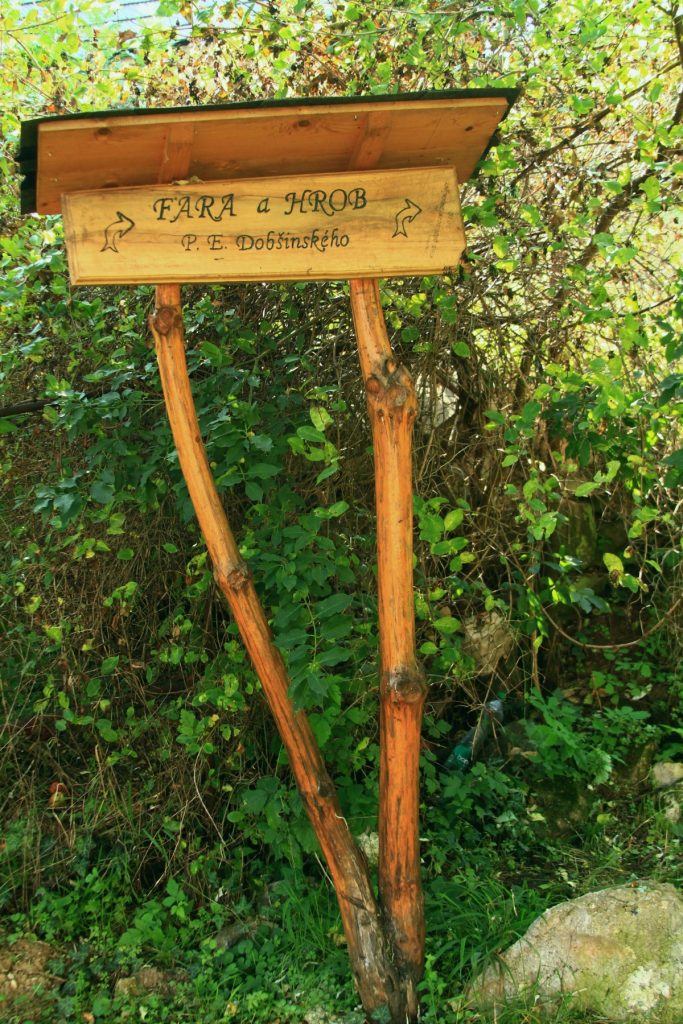 FARA a HROB
P. E. Dobšinského